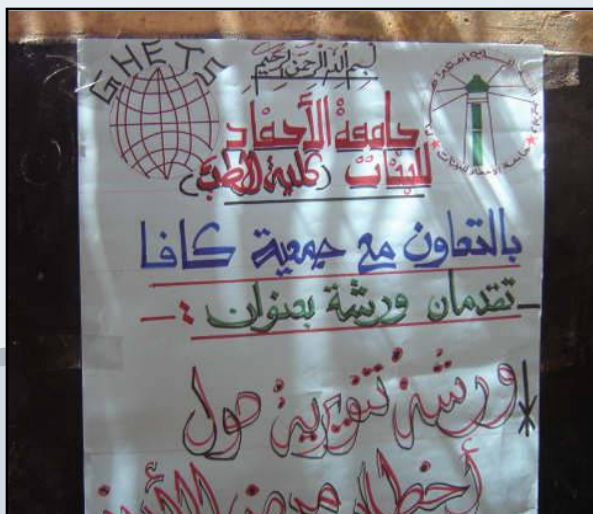 GHETS
بسم الله الرحمن الرحيم
جامعة الأحفاد
للبنات (كلية الطب)
بالتعاون مع جمعية كافا
تقدمان ورشة بعنوان :-
* ورشة تنويرية حول
أخطار مرض